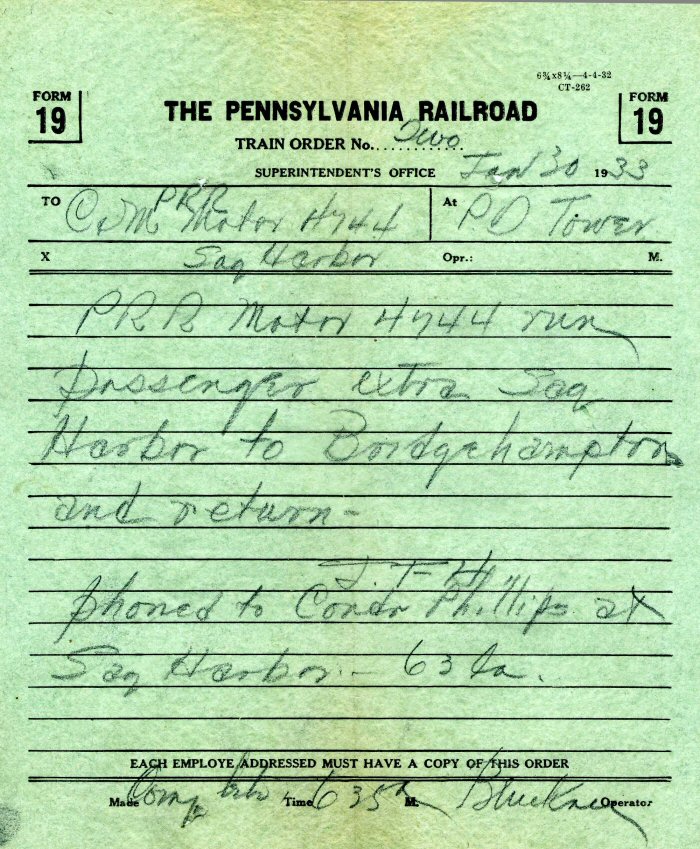 6¾x8¼—4-4-32
CT-262
FORM 19
THE PENNSYLVANIA RAILROAD
FORM 19
TRAIN ORDER No. Two
SUPERINTENDENT'S OFFICE Jan 30 1933
TO C&M PRR Motor 4744 At PD Tower
X Sag Harbor Opr.: M.
PRR Motor 4744 run
passenger extra Sag
Harbor to Bridgehampton
and return -
phoned to Condr Phillips at
Sag Harbor. -
EACH EMPLOYE ADDRESSED MUST HAVE A COPY OF THIS ORDER
Made Complete Time 635 M. Operator